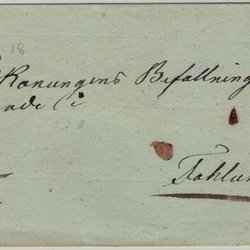 18
Konungens Befallning
ade i
Fahlun